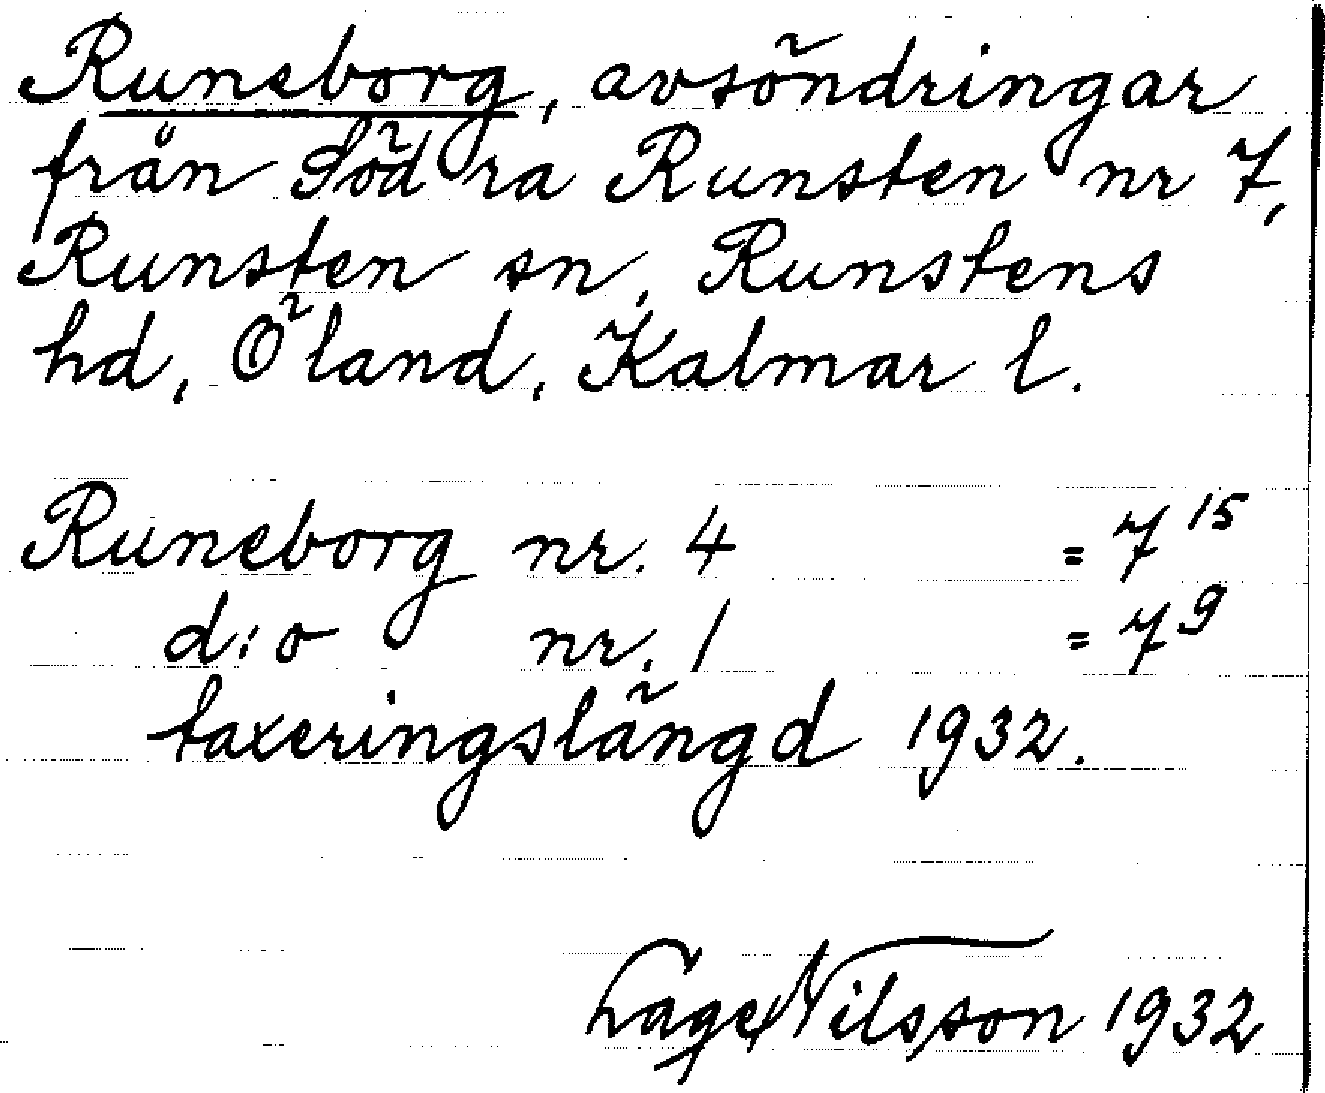 Runeborg, avsöndringar
från Södra Runsten nr 7,
Runsten sn, Runstens
hd, Öland, Kalmar l.
Runeborg nr. 4 = 7¹⁵
d:o nr. 1 = 7⁹
taxeringslängd 1932.
Lage Nilsson 1932